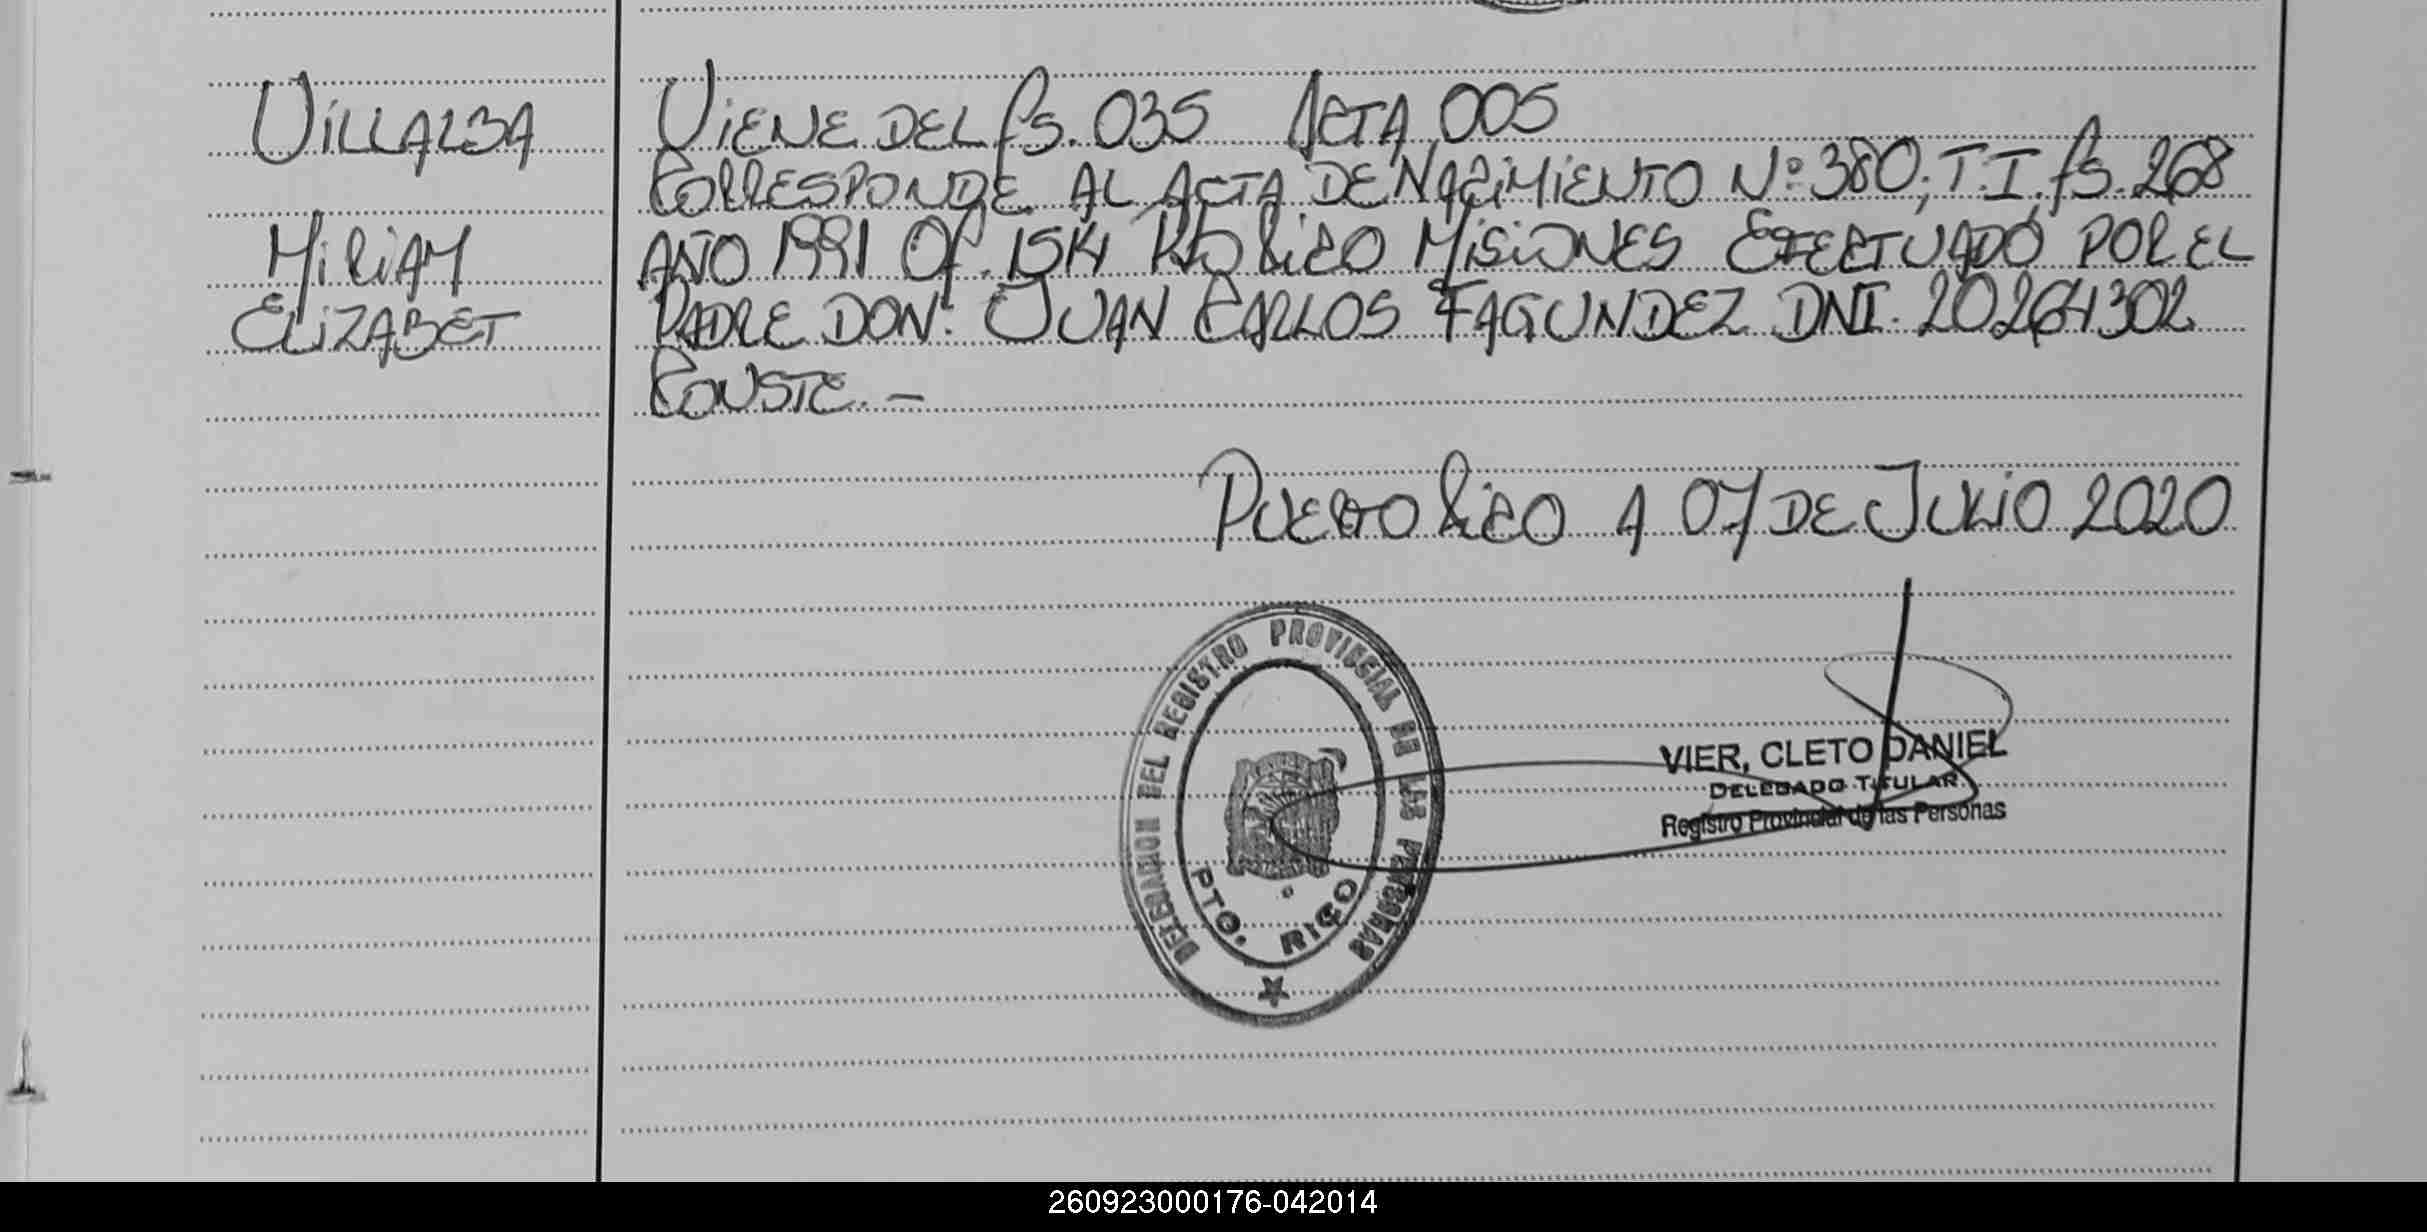 VILLALBA
MIRIAM
ELIZABET
VIENE DEL fs. 035 ACTA 005
CORRESPONDE AL ACTA DE NACIMIENTO Nº 380; T.I. fs. 268
AÑO 1991 Of. 1514 Pto Rico MISIONES EFECTUADO POR EL
PADRE DON: JUAN CARLOS FAGUNDEZ DNI. 20264302
CONSTE. –
PUERTO RICO A 07 DE JULIO 2020
DELEGACION DEL REGISTRO PROVINCIAL DE LAS PERSONAS
PTO. RICO
VIER, CLETO DANIEL
DELEGADO TITULAR
Registro Provincial de las Personas
260923000176-042014